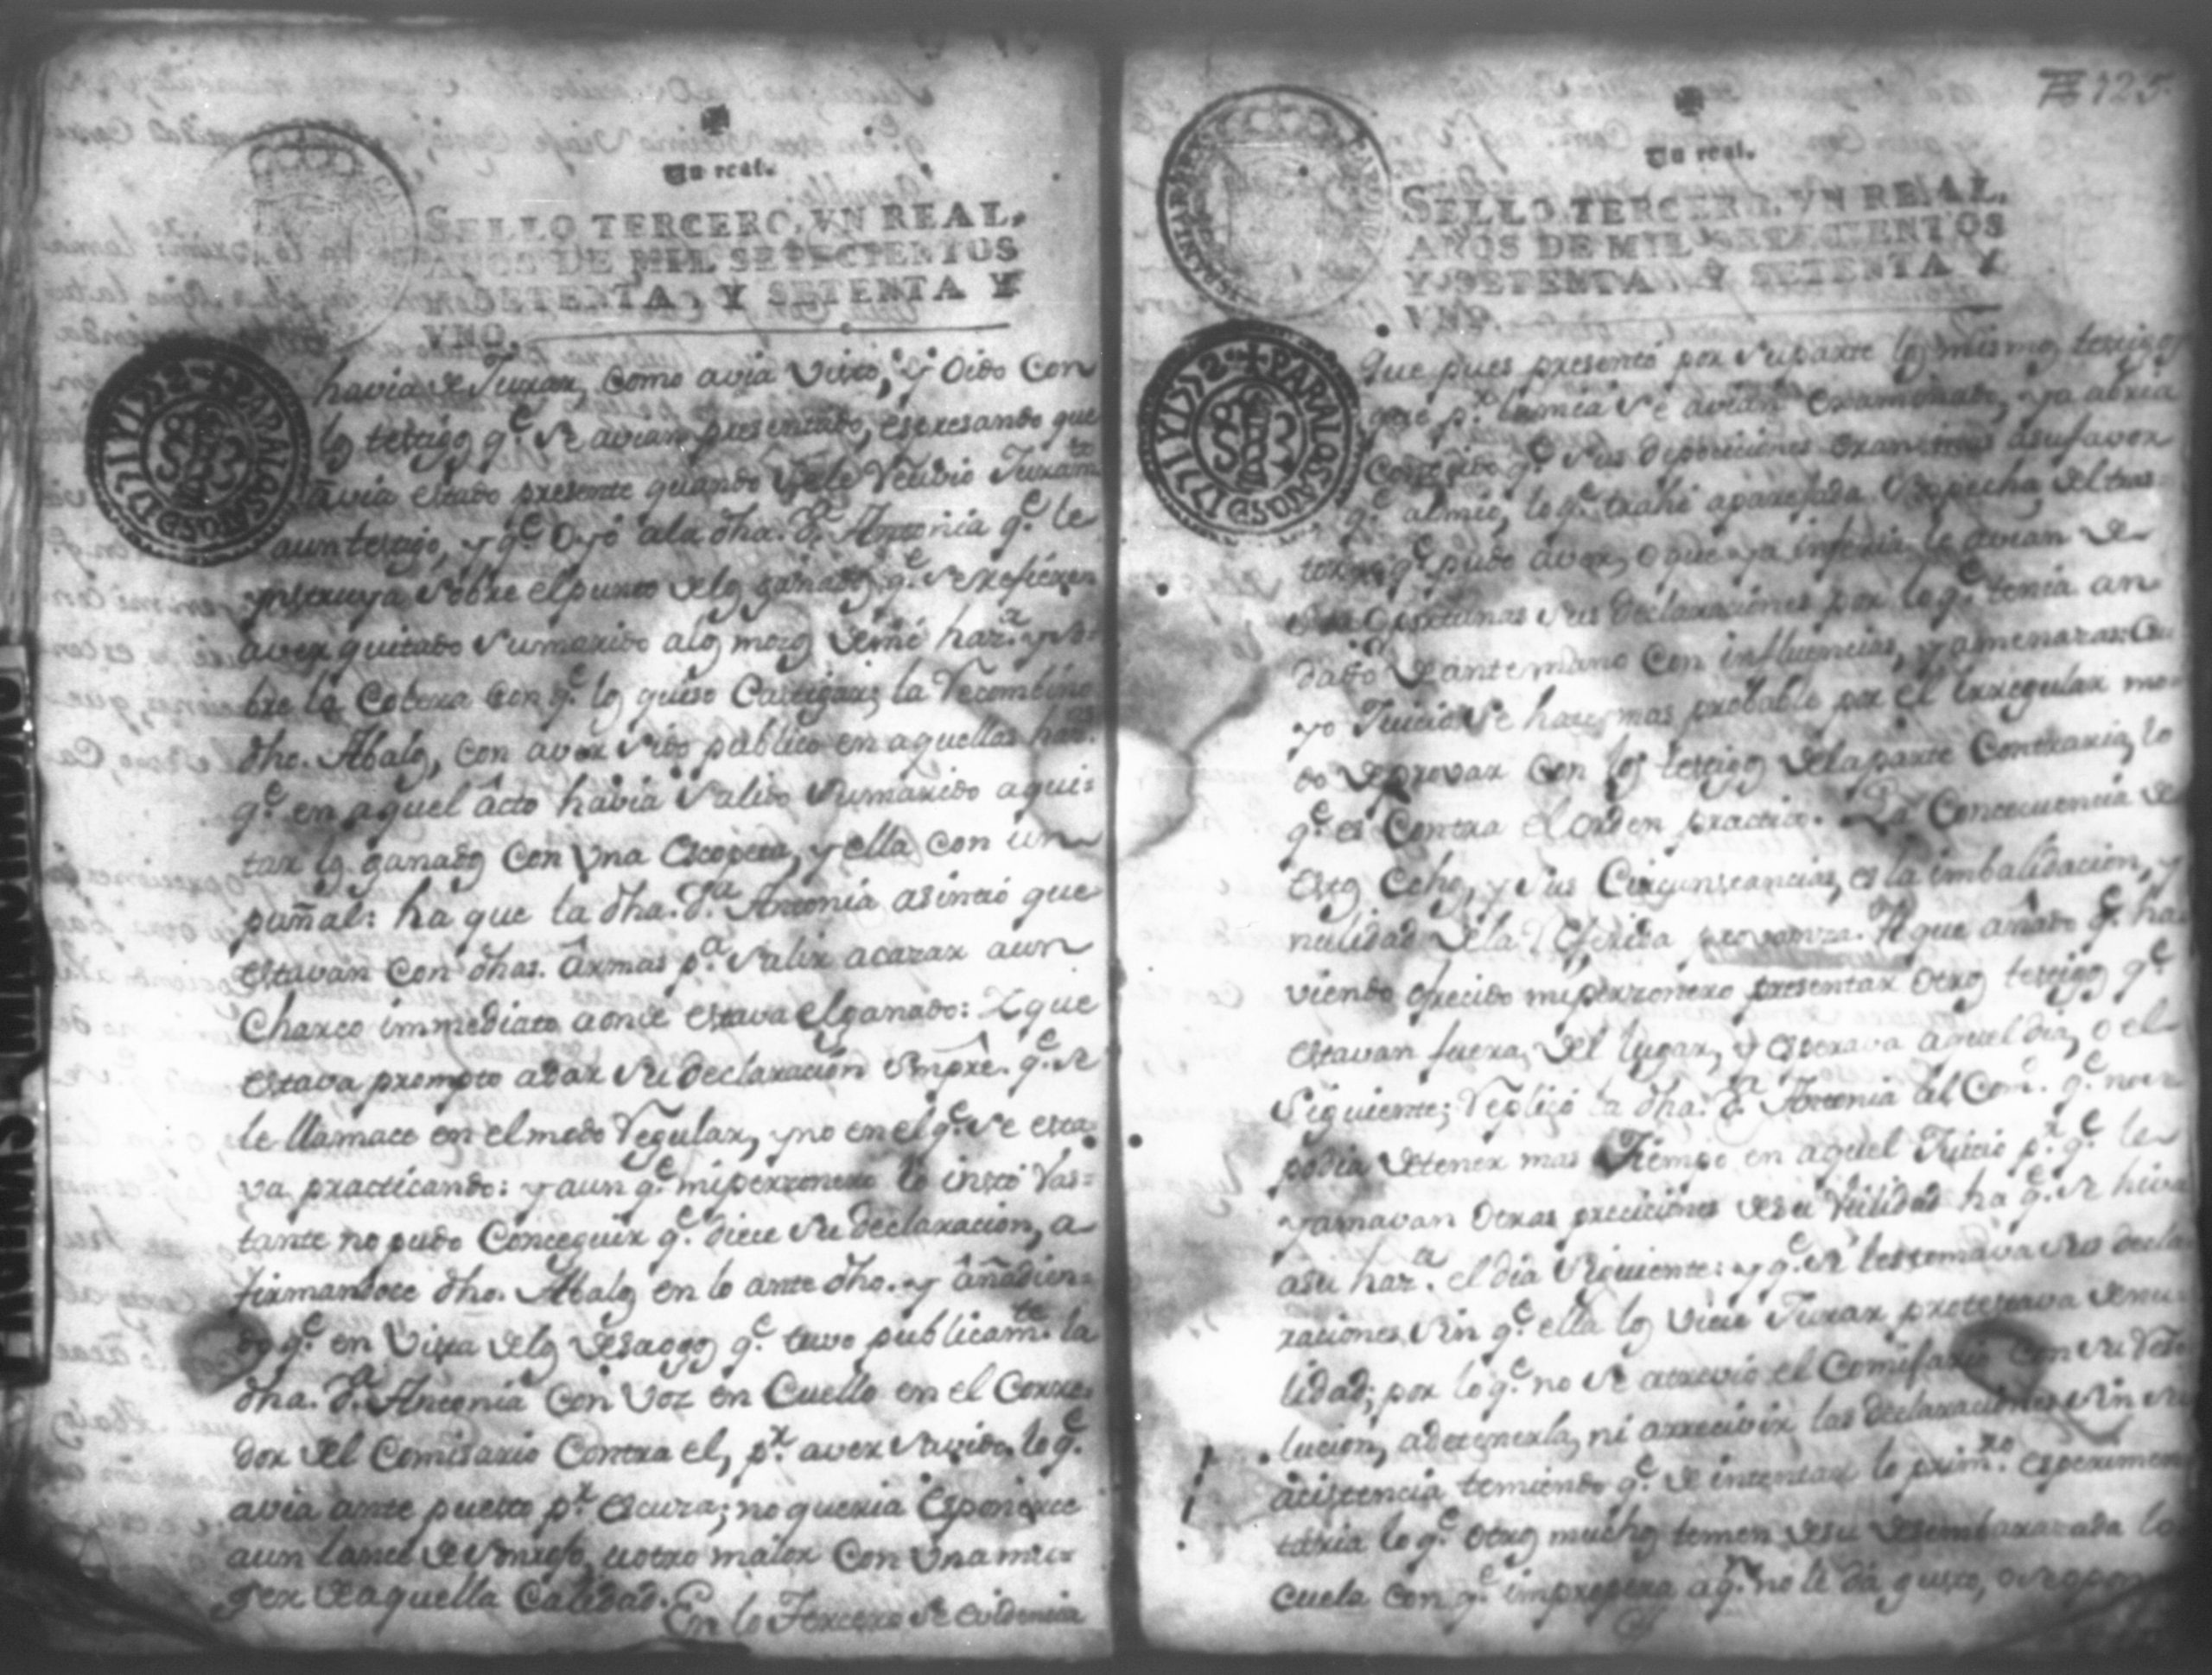 Un real.
SELLO TERCERO, VN REAL,
AÑOS DE MIL SETECIENTOS
Y SETENTA, Y SETENTA Y
VNO.
+ PARA LOS AÑOS D 1771 Y 1772
havia de Jurar, como avia visto, y oido con
los testigos q.e se avian presentado, expresando que
avia estado presente quando se le recivio Juram.to
a un testigo, y q.e oyó a la dha. D.a Antonia q.e le
instruya sobre el punto de los ganados q.e se refieren
aver quitado su marido a los mozos de mi haz.a y so-
bre la con q.e los quiso Castigar, la Recombino
dho. Abalos, con aver sido publico en aquellas haz.as
q.e en aquel ácto havia salido su marido a qui-
tar los ganados con una Escopeta, y ella con un
puñal: ha que la dha. D.a Antonia asintió que
estavan con dhas. ârmas p.a salir a cazar a un
Charco immediato a onde estava el ganado: Y que
estava prompto a dar su declaración simpre. q.e se
le llamace en el modo Regular, y no en el q.e se esta-
va practicando: y aun q.e mi perzonero lo instó vas-
tante no pudo Conceguir q.e diece su declaracion, a
firmandose dho. Abalos en lo ante dho. y âñadien-
do q.e en vista de los desaogos q.e tuvo publicam.te la
dha. D.a Antonia con voz en Cuello en el Corre-
dor del Comisario Contra el, p.r aver savido lo q.e
avia ante puesto p.r escuza; no queria Esponerce
a un lance de u otro maior con una mu-
ger de aquella Calidad. En lo Tercero se evidencia
125
Un real.
SELLO TERCERO, VN REAL,
AÑOS DE MIL SETECIENTOS
Y SETENTA, Y SETENTA Y
VNO.
+ PARA LOS AÑOS D 1771 Y 1772
que pues presentó por su parte los mismos testigos
que p.r la mia se avian Examinado, ya abria
Conseguido q.e sus deposiciones a su favor
q.e al mio, lo q.e trahe aparejada Sospecha del tras
torno q.e pudo aver, o que ya inferia le avian de
ser oportunas sus declaraciones por lo q.e tenia an
dado de ante mano con influencias, y amenazas: Cu
yo Juicio se hace mas probable por el irregular mo
do de provar con los testigos de la parte Contraria, lo
q.e es Contra el orden practico. La Concecuencia de
estos Echos, y sus Circunstancias, es la imbalidacion, y
nulidad de la Referida provanza. A que añado q.e ha
viendo ofrecido mi perzonero presentar otros testigos q.e
estavan fuera del lugar, y esperava aquel dia, o el
Siguiente; Replicó la dha. D.a Antonia al Com.o q.e no se
podia detener mas Tiempo en aquel Juicio p.r q.e le
yamavan Otras preciciones de su Utilidad ha q.e se hiva
a su haz.a el dia Siguiente: y q.e si les tomava sus decla
raciones sin q.e ella los viese Jurar protestava de nu
lidad; por lo q.e no se atrevió el Comisario con su Reso
lucion, a detenerla, ni a rrecivir las declaraciones sin su
acistencia temiendo q.e de intentar lo prim.ro esperimen
taria lo q.e otros muchos temen de su desembarazada lo
cuela con q.e impropera a q.n no le dá gusto,